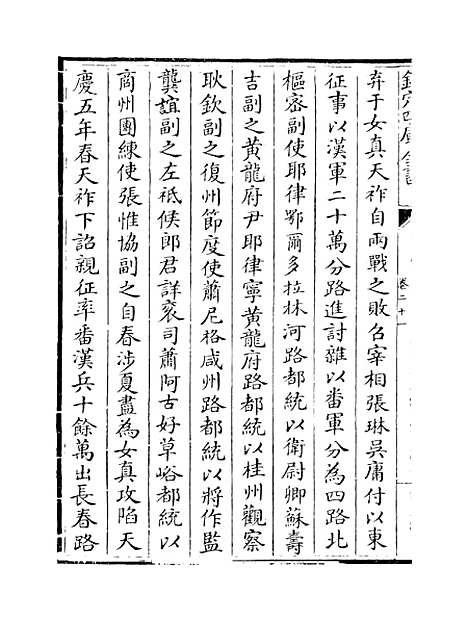 欽定四庫全書
卷二十一
弃于女真天祚自兩戰之敗召宰相張琳吳庸付以東
征事以漢軍二十萬分路進討雜以畨軍分為四路北
樞宻副使耶律鄂爾多拉林河路都統以衛尉卿蘇壽
吉副之黄龍府尹耶律寧黄龍府路都統以桂州觀察
耿欽副之復州節度使蕭尼格咸州路都統以將作監
龔誼副之左祗候郎君詳衮司蕭阿古好草峪都統以
商州團練使張惟協副之自春涉夏盡為女真攻陷天
慶五年春天祚下詔親征率畨漢兵十餘萬出長春路